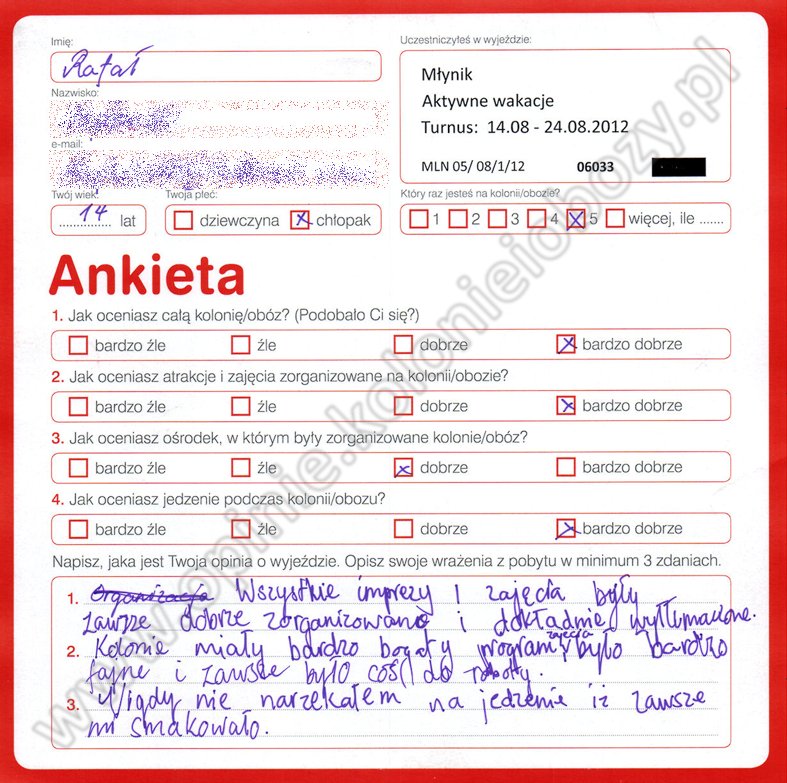 Imię:
Rafał
Nazwisko:
e-mail:
Twój wiek:
14 lat
Twoja płeć:
dziewczyna chłopak
Uczestniczyłeś w wyjeździe:
Młynik
Aktywne wakacje
Turnus: 14.08 - 24.08.2012
MLN 05/ 08/1/12 06033
Który raz jesteś na kolonii/obozie?
1 2 3 4 5 więcej, ile .......
Ankieta
1. Jak oceniasz całą kolonię/obóz? (Podobało Ci się?)
bardzo źle źle dobrze bardzo dobrze
2. Jak oceniasz atrakcje i zajęcia zorganizowane na kolonii/obozie?
bardzo źle źle dobrze bardzo dobrze
3. Jak oceniasz ośrodek, w którym były zorganizowane kolonie/obóz?
bardzo źle źle dobrze bardzo dobrze
4. Jak oceniasz jedzenie podczas kolonii/obozu?
bardzo źle źle dobrze bardzo dobrze
Napisz, jaka jest Twoja opinia o wyjeździe. Opisz swoje wrażenia z pobytu w minimum 3 zdaniach.
1. Organizacja Wszystkie imprezy i zajęcia były
zawsze dobrze zorganizowane i dokładnie wytłumaczone.
2. Kolonie miały bardzo bogaty program, zajęcia było bardzo
fajne i zawsze było coś do roboty.
3. Nigdy nie narzekałem na jedzenie iż zawsze
mi smakowało.
www.opinie.kolonieiobozy.pl